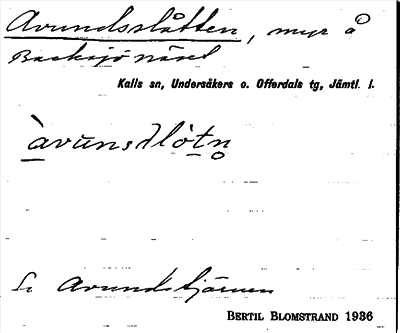 Avundsslåtten, myr å
Backsjönäset
Kalls sn, Undersåkers o. Offerdals tg, Jämtl. l.
àvunsɔlòtn̥
Se Avundstjärnen
BERTIL BLOMSTRAND 1936